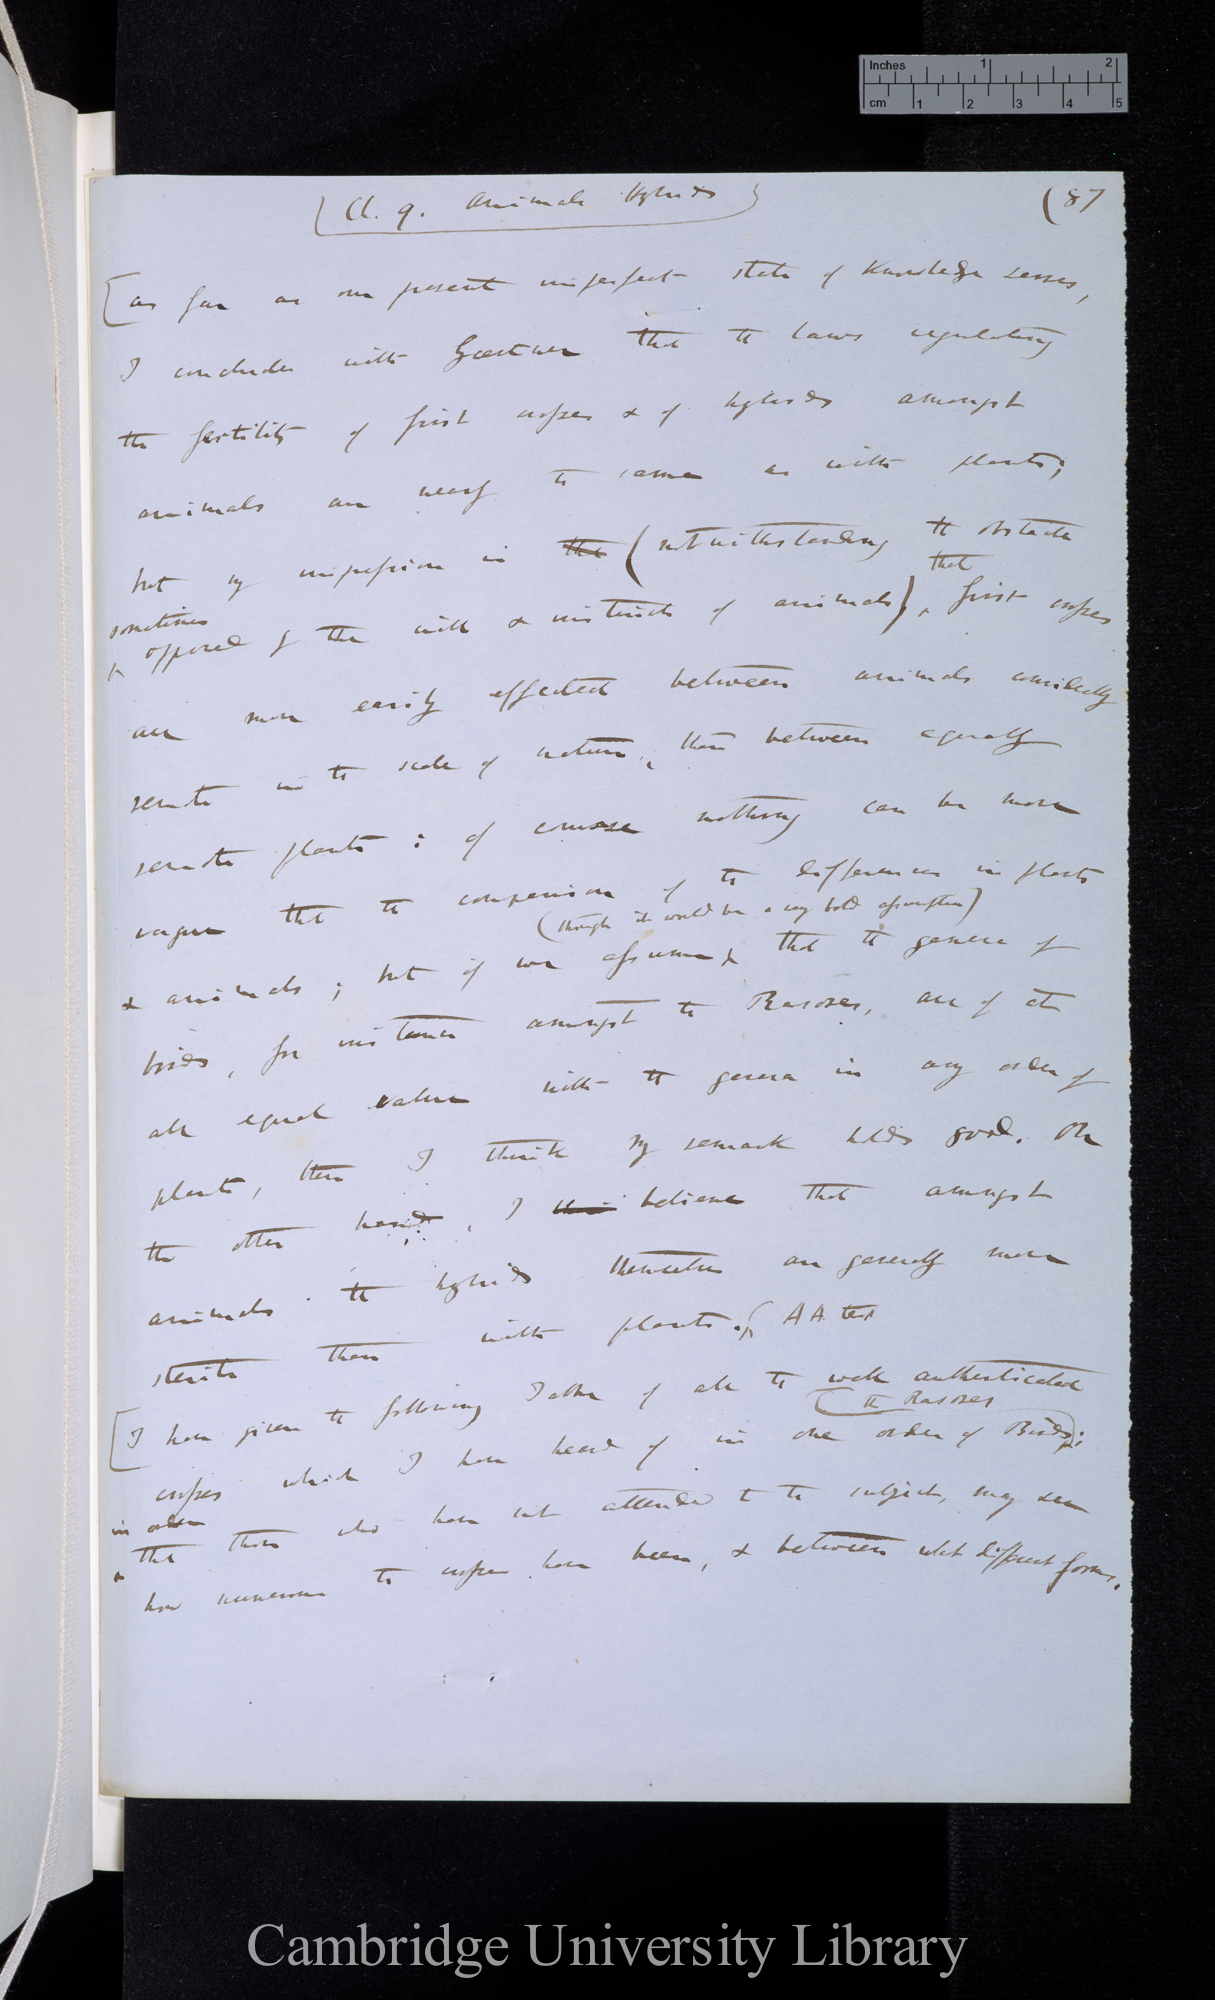 Inches 1 2
cm 1 2 3 4 5
(Ch. 9. Animals Hybrids)
(87
[as far as our present imperfect state of knowledge serves,
I conclude with Gaertner that the laws regulating
the fertility of first crosses & of hybrids amongst
animals are nearly the same as with plants;
but my impression is the (notwithstanding the obstacle
sometimes
opposed by the will & instincts of animals) that first crosses
are more easily effected between animals considerably
remote in the scale of nature, than between equally
remote plants: of course nothing can be more
vague that the comparison of the differences in plants
(though it would be a very bold assumption)
& animals; but if we assume that the genera of
birds, for instance amongst the Rasores, are of at
all equal value with the genera in any order of
plants, then I think my remark holds good. On
the other hand, I believe that amongst
animals the hybrids themselves are generally more
sterile than with plants. (AA text
[I have given the following Table of all the well authenticated
the Rasores
crosses which I have heard of in one order of Birds;
in order
that those who have not attended to the subject, may see
how numerous the crosses have been, & between what different forms.
Cambridge University Library